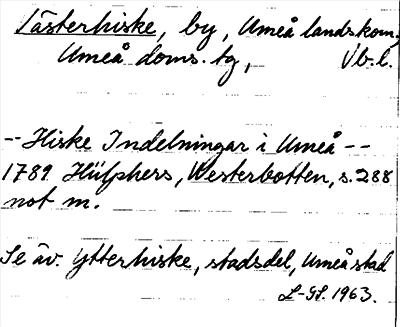 Västerhiske, by, Umeå landskom.,
Umeå doms. tg, Vb.l.
-- Hiske Indelningar i Umeå --
1789 Hülphers, Westerbotten, s. 288
not m.
Se äv. Ytterhiske, stadsdel, Umeå stad
L-GL. 1963.